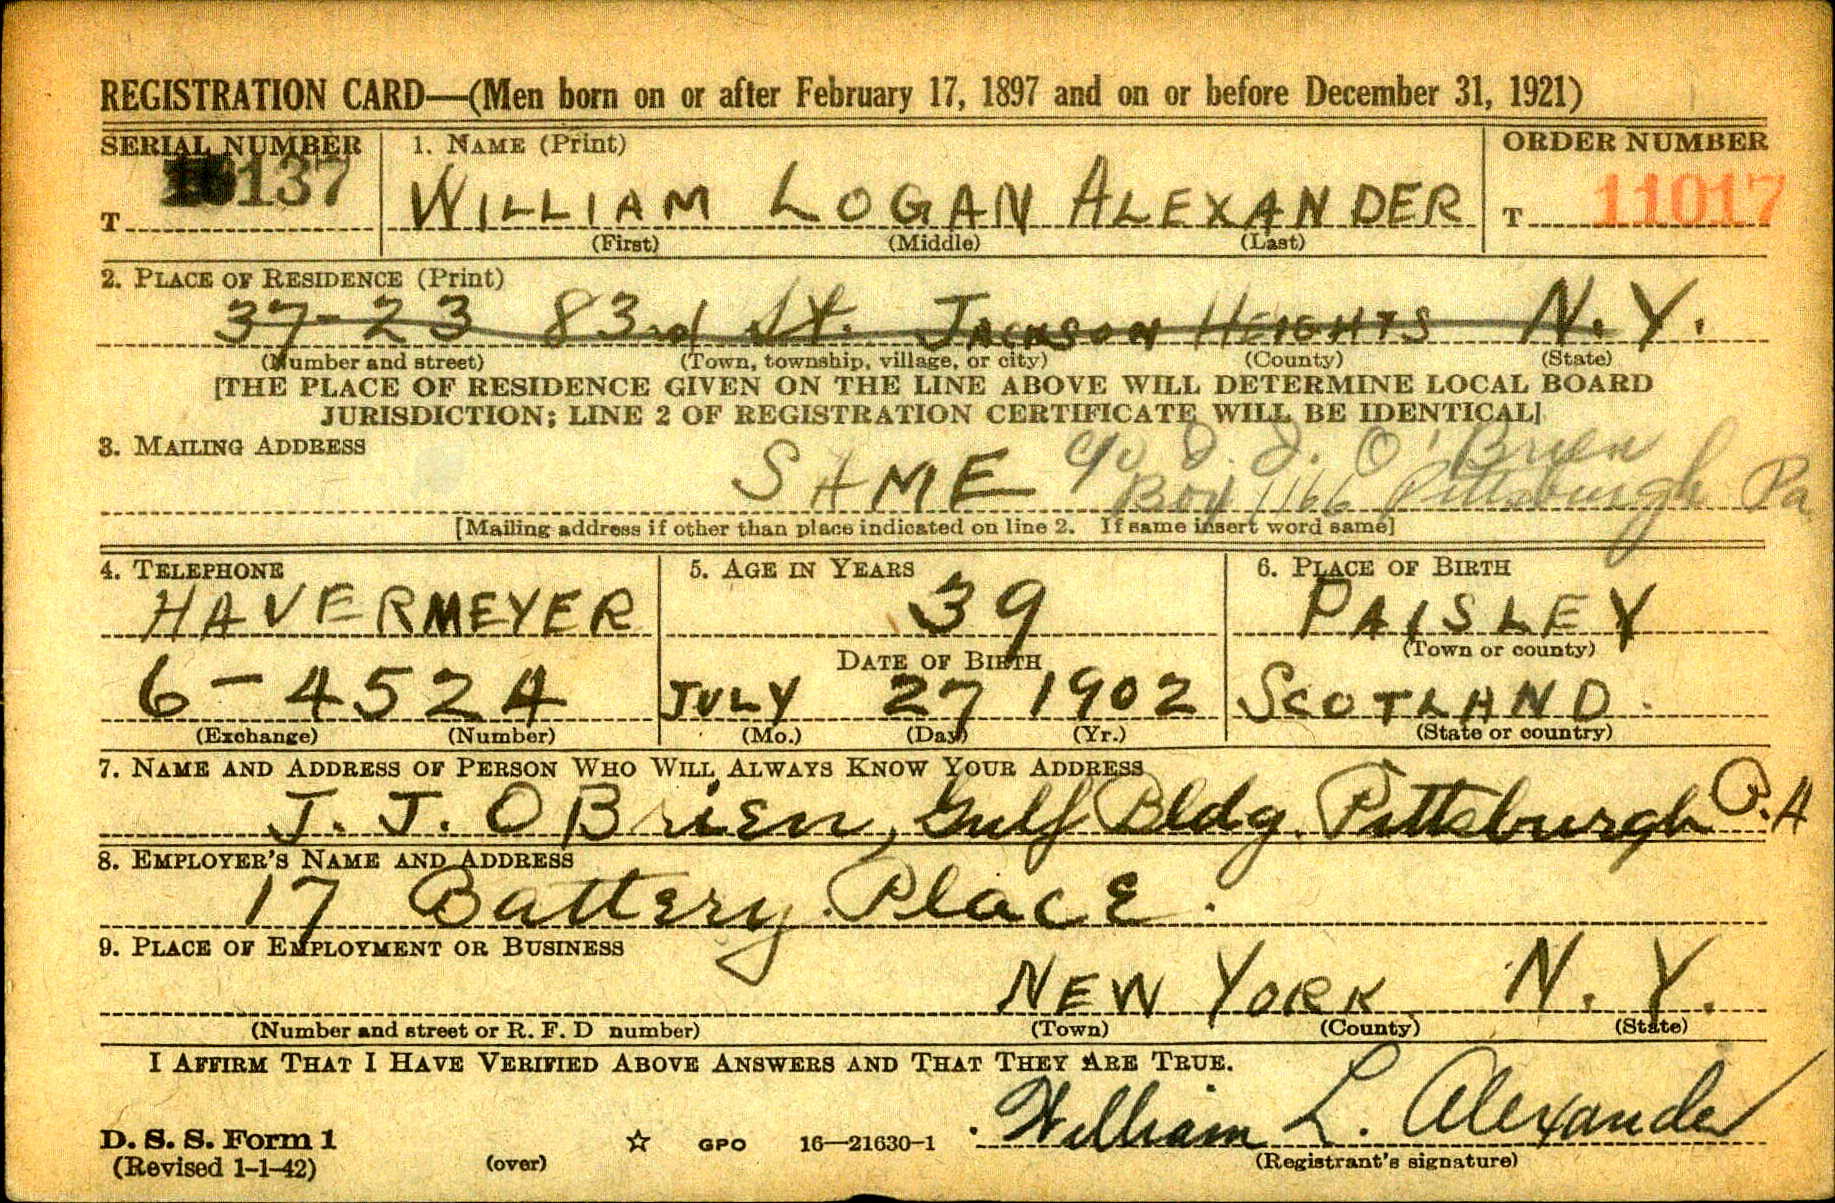 REGISTRATION CARD—(Men born on or after February 17, 1897 and on or before December 31, 1921)
SERIAL NUMBER 1. NAME (Print) ORDER NUMBER
T 137 WILLIAM LOGAN ALEXANDER T 11017
(First) (Middle) (Last)
2. PLACE OF RESIDENCE (Print)
37-23 83rd St. JACKSON HEIGHTS N.Y.
(Number and street) (Town, township, village, or city) (County) (State)
[THE PLACE OF RESIDENCE GIVEN ON THE LINE ABOVE WILL DETERMINE LOCAL BOARD
JURISDICTION; LINE 2 OF REGISTRATION CERTIFICATE WILL BE IDENTICAL]
3. MAILING ADDRESS
SAME c/o J. J. O'Brien
Box 1166 Pittsburgh Pa
[Mailing address if other than place indicated on line 2. If same insert word same]
4. TELEPHONE 5. AGE IN YEARS 6. PLACE OF BIRTH
HAVERMEYER 39 PAISLEY
(Town or county)
DATE OF BIRTH
6-4524 JULY 27 1902 SCOTLAND.
(Exchange) (Number) (Mo.) (Day) (Yr.) (State or country)
7. NAME AND ADDRESS OF PERSON WHO WILL ALWAYS KNOW YOUR ADDRESS
J. J. OBrien, Gulf Bldg. Pittsburgh P.A
8. EMPLOYER'S NAME AND ADDRESS
17 Battery Place.
9. PLACE OF EMPLOYMENT OR BUSINESS
NEW YORK N. Y.
(Number and street or R. F. D number) (Town) (County) (State)
I AFFIRM THAT I HAVE VERIFIED ABOVE ANSWERS AND THAT THEY ARE TRUE.
William L. Alexander
D. S. S. Form 1
(Revised 1-1-42) (over) GPO 16—21630-1 (Registrant's signature)